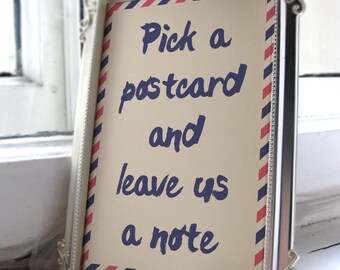 Pick a
postcard
and
leave us
a note